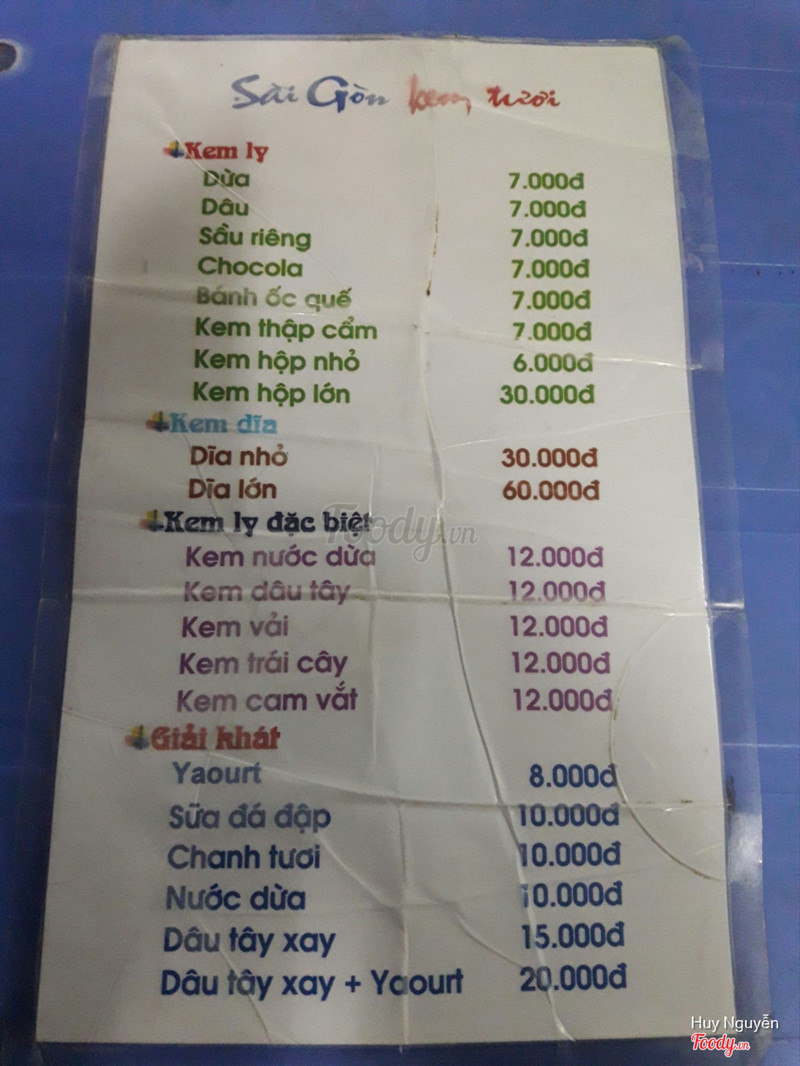 Sài Gòn kem tươi
Kem ly
Dừa 7.000đ
Dâu 7.000đ
Sầu riêng 7.000đ
Chocola 7.000đ
Bánh ốc quế 7.000đ
Kem thập cẩm 7.000đ
Kem hộp nhỏ 6.000đ
Kem hộp lớn 30.000đ
Kem dĩa
Dĩa nhỏ 30.000đ
Dĩa lớn 60.000đ
Kem ly đặc biệt
Kem nước dừa 12.000đ
Kem dâu tây 12.000đ
Kem vải 12.000đ
Kem trái cây 12.000đ
Kem cam vắt 12.000đ
Giải khát
Yaourt 8.000đ
Sữa đá đập 10.000đ
Chanh tươi 10.000đ
Nước dừa 10.000đ
Dâu tây xay 15.000đ
Dâu tây xay + Yaourt 20.000đ
Foody.vn
Huy Nguyễn
Foody.vn